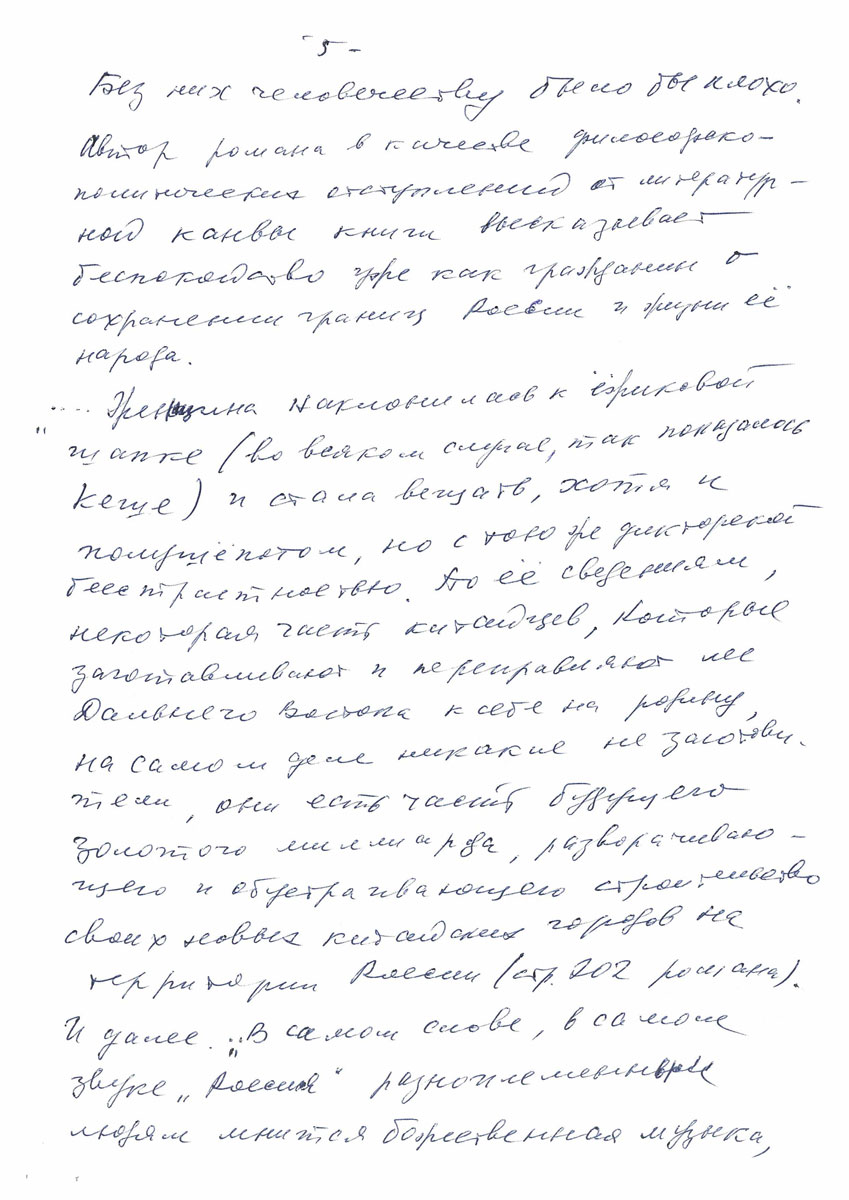 - 5 -
Без них человечеству было бы плохо.
Автор романа в качестве философско-
политических отступлений от литератур-
ной канвы книги высказывает
беспокойство уже как гражданин о
сохранении границ России и жизни её
народа.
„.... Женщина наклонилась к ёжиковой
шапке (во всяком случае, так показалось
Кеше) и стала вещать, хотя и
полушёпотом, но с тою же дикторской
бесстрастностью. По её сведениям,
некоторая часть китайцев, которые
заготавливают и переправляют лес
Дальнего Востока к себе на родину,
на самом деле никакие не заготови-
тели, они есть часть будущего
золотого миллиарда, разворачиваю-
щего и обустраивающего строительство
своих новых китайских городов на
территории России (стр. 202 романа).
И далее. „В самом слове, в самом
звуке „Россия" разноплеменным
людям мнится божественная музыка,